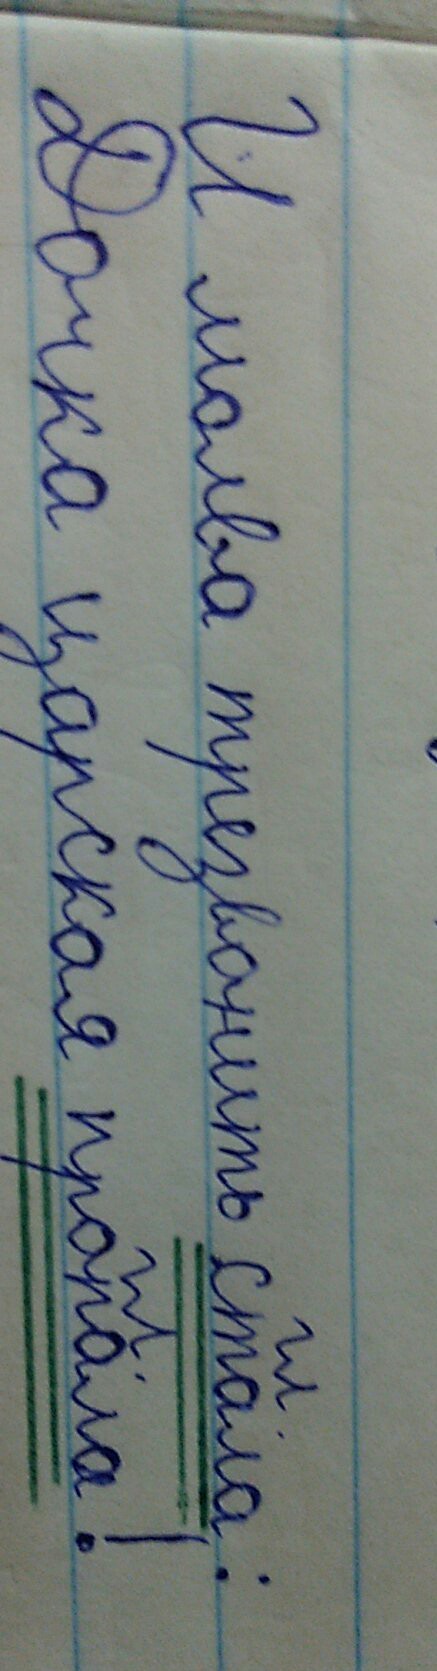 гл.
И молва трезвонить стала:
гл.
Дочка царская пропала!